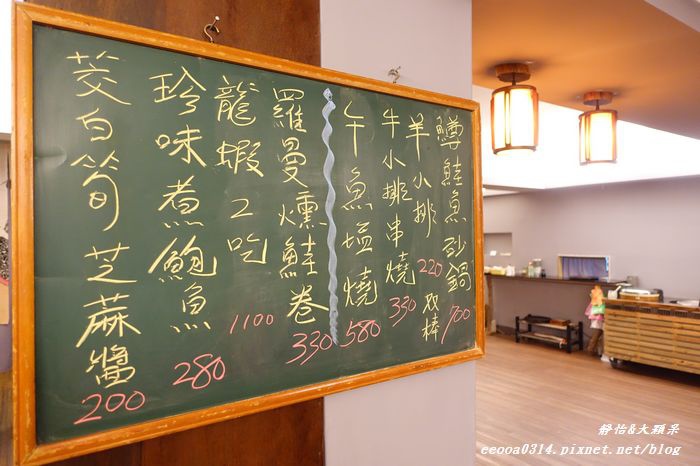 鱒鮭魚砂鍋 700
羊小排 220 双棒
牛小排串燒 330
午魚塩燒 580
羅曼燻鮭卷 330
龍蝦2吃 1100
珍味煮鮑魚 280
茭白筍芝蔴醬 200
靜怡&大顆呆
ceooa0314.pixnet.net/blog